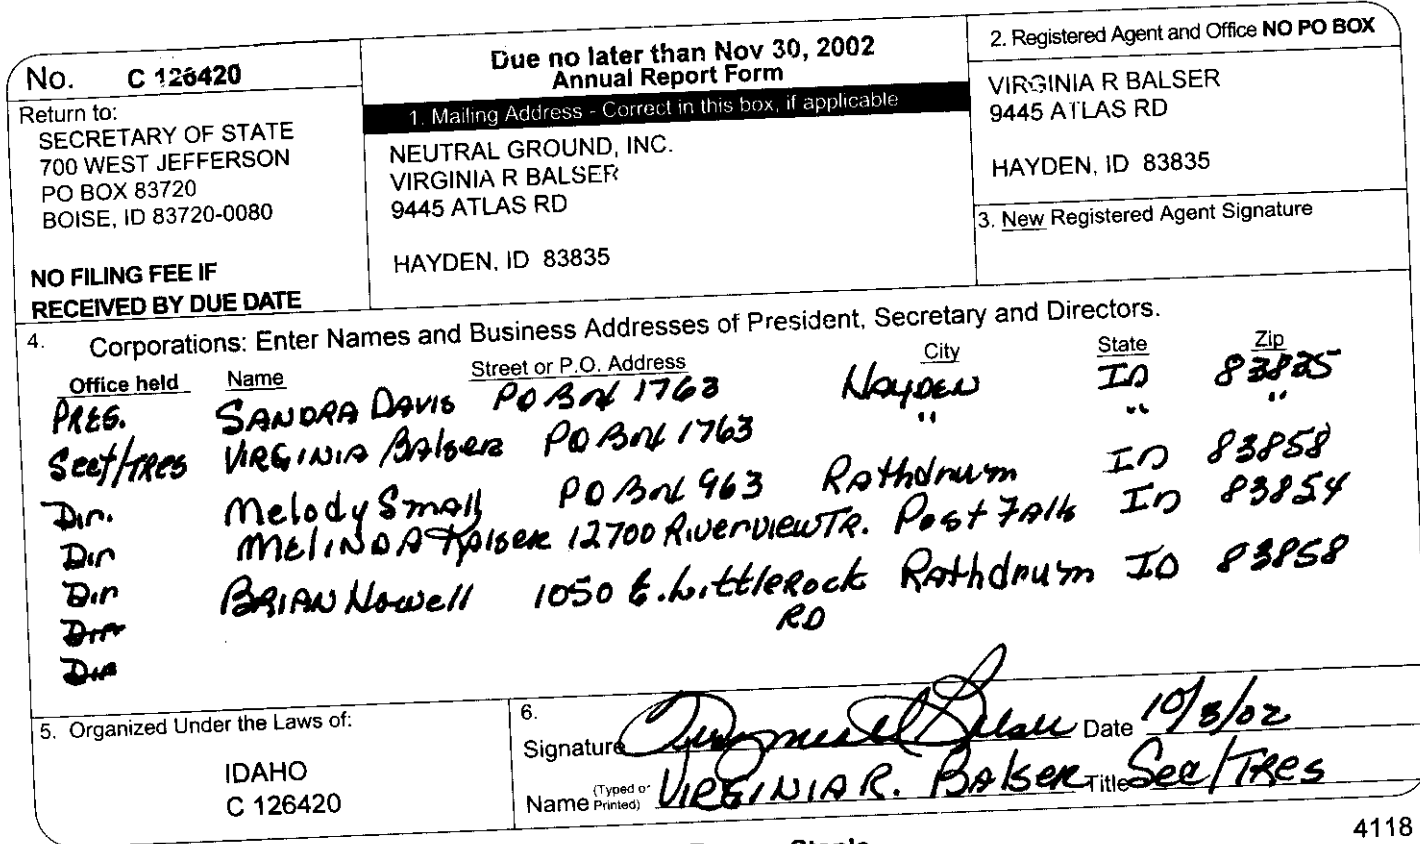 No. C 126420
Return to:
SECRETARY OF STATE
700 WEST JEFFERSON
PO BOX 83720
BOISE, ID 83720-0080
NO FILING FEE IF
RECEIVED BY DUE DATE
Due no later than Nov 30, 2002
Annual Report Form
1. Mailing Address - Correct in this box, if applicable
NEUTRAL GROUND, INC.
VIRGINIA R BALSER
9445 ATLAS RD
HAYDEN, ID 83835
2. Registered Agent and Office NO PO BOX
VIRGINIA R BALSER
9445 ATLAS RD
HAYDEN, ID 83835
3. New Registered Agent Signature
4. Corporations: Enter Names and Business Addresses of President, Secretary and Directors.
Office held Name Street or P.O. Address City State Zip
PRES. SANDRA DAVIS PO Box 1763 HAYDEN ID 83835
Sect/TRES VIRGINIA BALSER PO Box 1763 " " "
Dir. Melody Small PO Box 963 Rathdrum ID 83858
Dir MELINDA 12700 Riverview TR. Post Falls ID 83854
Dir BRIAN Nowell 1050 E. Little Rock Rathdrum ID 83858
RD
Dir
Dir
5. Organized Under the Laws of:
IDAHO
C 126420
6.
Signature Virginia R Balser Date 10/3/02
Name (Typed or Printed) VIRGINIA R. BALSER Title Sec/TRES
4118